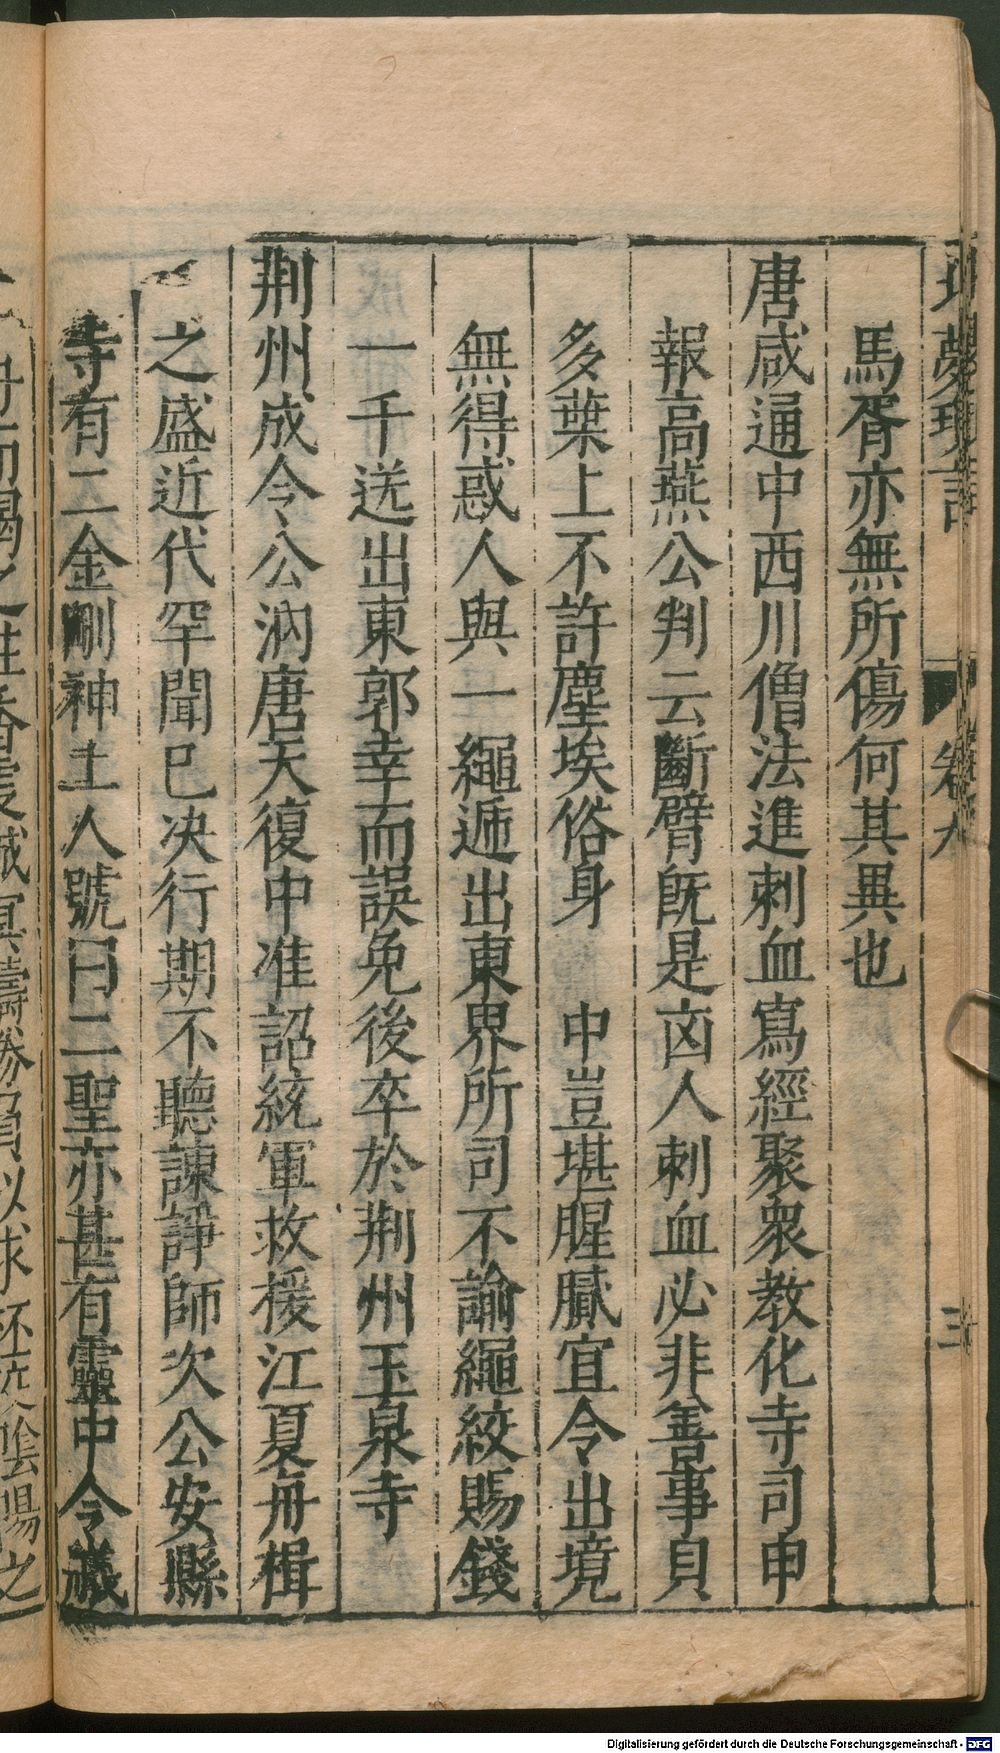 夢瑣言　卷九　三
馬胥亦無所傷何其異也
唐咸通中西川僧法進刺血寫經聚衆教化寺司申
報高燕公判云斷臂既是凶人刺血必非善事貝
多葉上不許塵埃俗身　中豈堪腥膩宜令出境
無得惑人與一繩遞出東界所司不諭繩絞賜錢
一千送出東郭幸而誤免後卒於荆州玉泉寺
荆州成令公汭唐天復中准詔統軍救援江夏舟楫
之盛近代罕聞巳决行期不聽諫諍師次公安縣
寺有二金剛神土人號曰二聖亦甚有靈中令藏
Digitalisierung gefördert durch die Deutsche Forschungsgemeinschaft - DFG